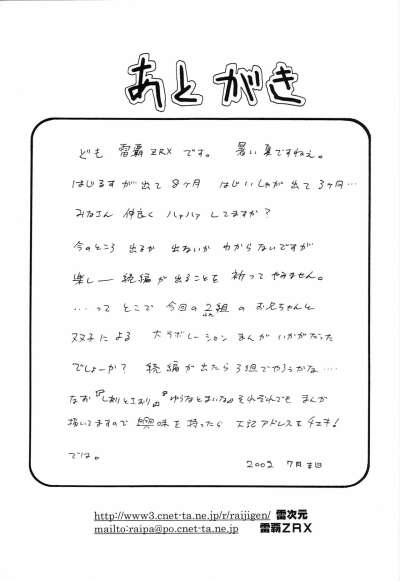 あとがき
ども 雷覇ZRX です。 暑い夏ですねぇ。
はじるすが出て 8ヶ月 はじいしゃが出て 3ヶ月…
みなさん 仲良く ハァハァ してますか?
今のところ 出るか 出ないか わからないですが
楽しー 続編が出ることを 祈って やみません。
…って とこで 今回の 2組 の お兄ちゃんと
双子による 大コラボレーション まんが いかがだった
でしょーか? 続編が出たら 3組でやろうかな…
なお それぞれでも まんが
描いてますので 興味を持ったら 下記アドレスをチェキ!
では。
2002 7月
http://www3.cnet-ta.ne.jp/r/raijigen/ 雷次元
mailto:raipa@po.cnet-ta.ne.jp 雷覇ZRX